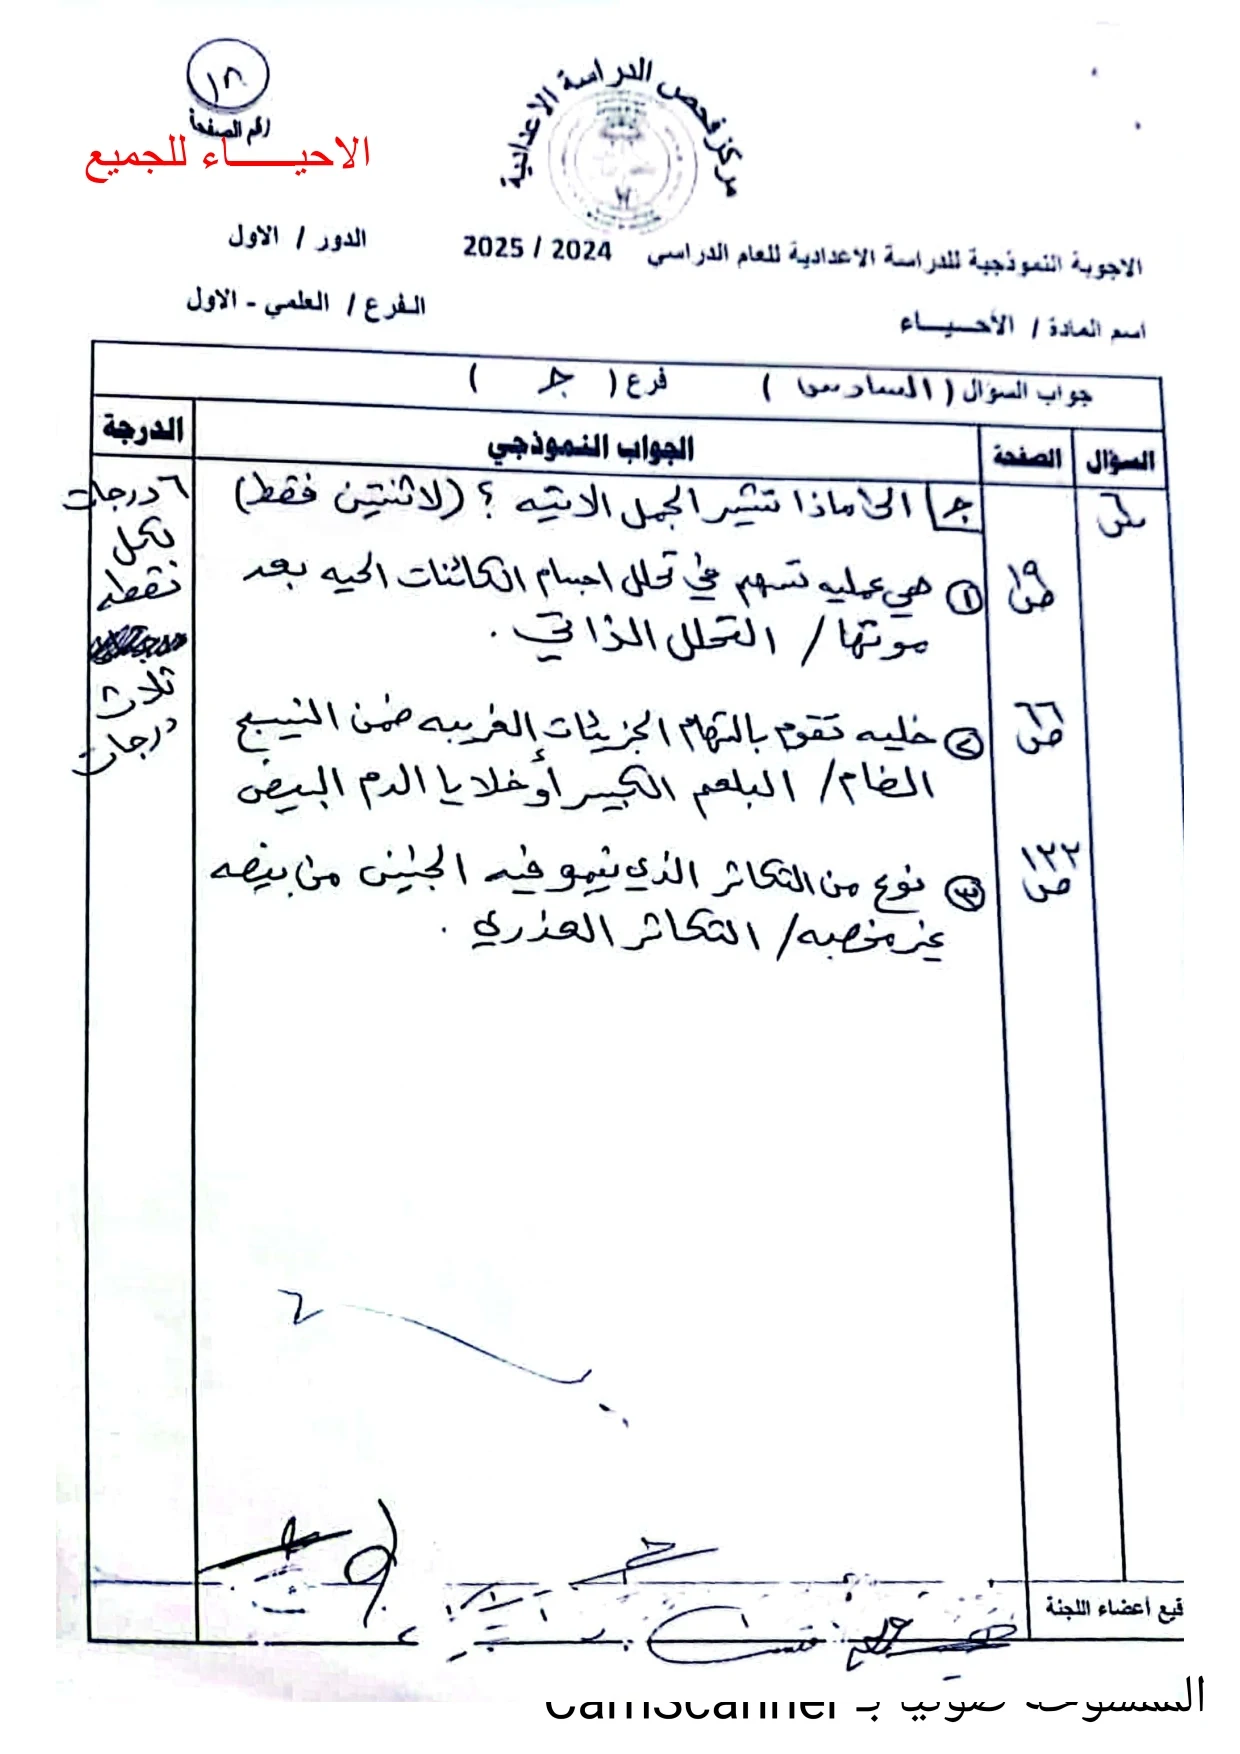 ١٨
رقم الصفحة
الاحيـــــاء للجميع
مركز فحص الدراسة الاعدادية
الدور / الاول
الاجوبة النموذجية للدراسة الاعدادية للعام الدراسي 2024 / 2025
الفرع / العلمي - الاول
اسم المادة / الأحـيـــاء
جواب السؤال ( السادس ) فرع ( جـ )
السؤال الصفحة الجواب النموذجي الدرجة
س٦ جـ الى ماذا تشير الجمل الاتيه ؟ (لاثنتين فقط) ٦ درجات
لكل
نقطه
ثلاث
درجات
ص١٩ ① هي عمليه تسهم في تحلل اجسام الكائنات الحيه بعد
موتها / التحلل الذاتي .
ص٦٦ ② خليه تقوم بالتهام الجزيئات الغريبه ضمن النسيج
الضام / البلعم الكبير أو خلايا الدم البيض
ص١٢٢ ③ نوع من التكاثر الذي ينمو فيه الجنين من بيضه
غير مخصبه / التكاثر العذري .
قيع أعضاء اللجنة
الممسوحة ضوئيا بـ CamScanner